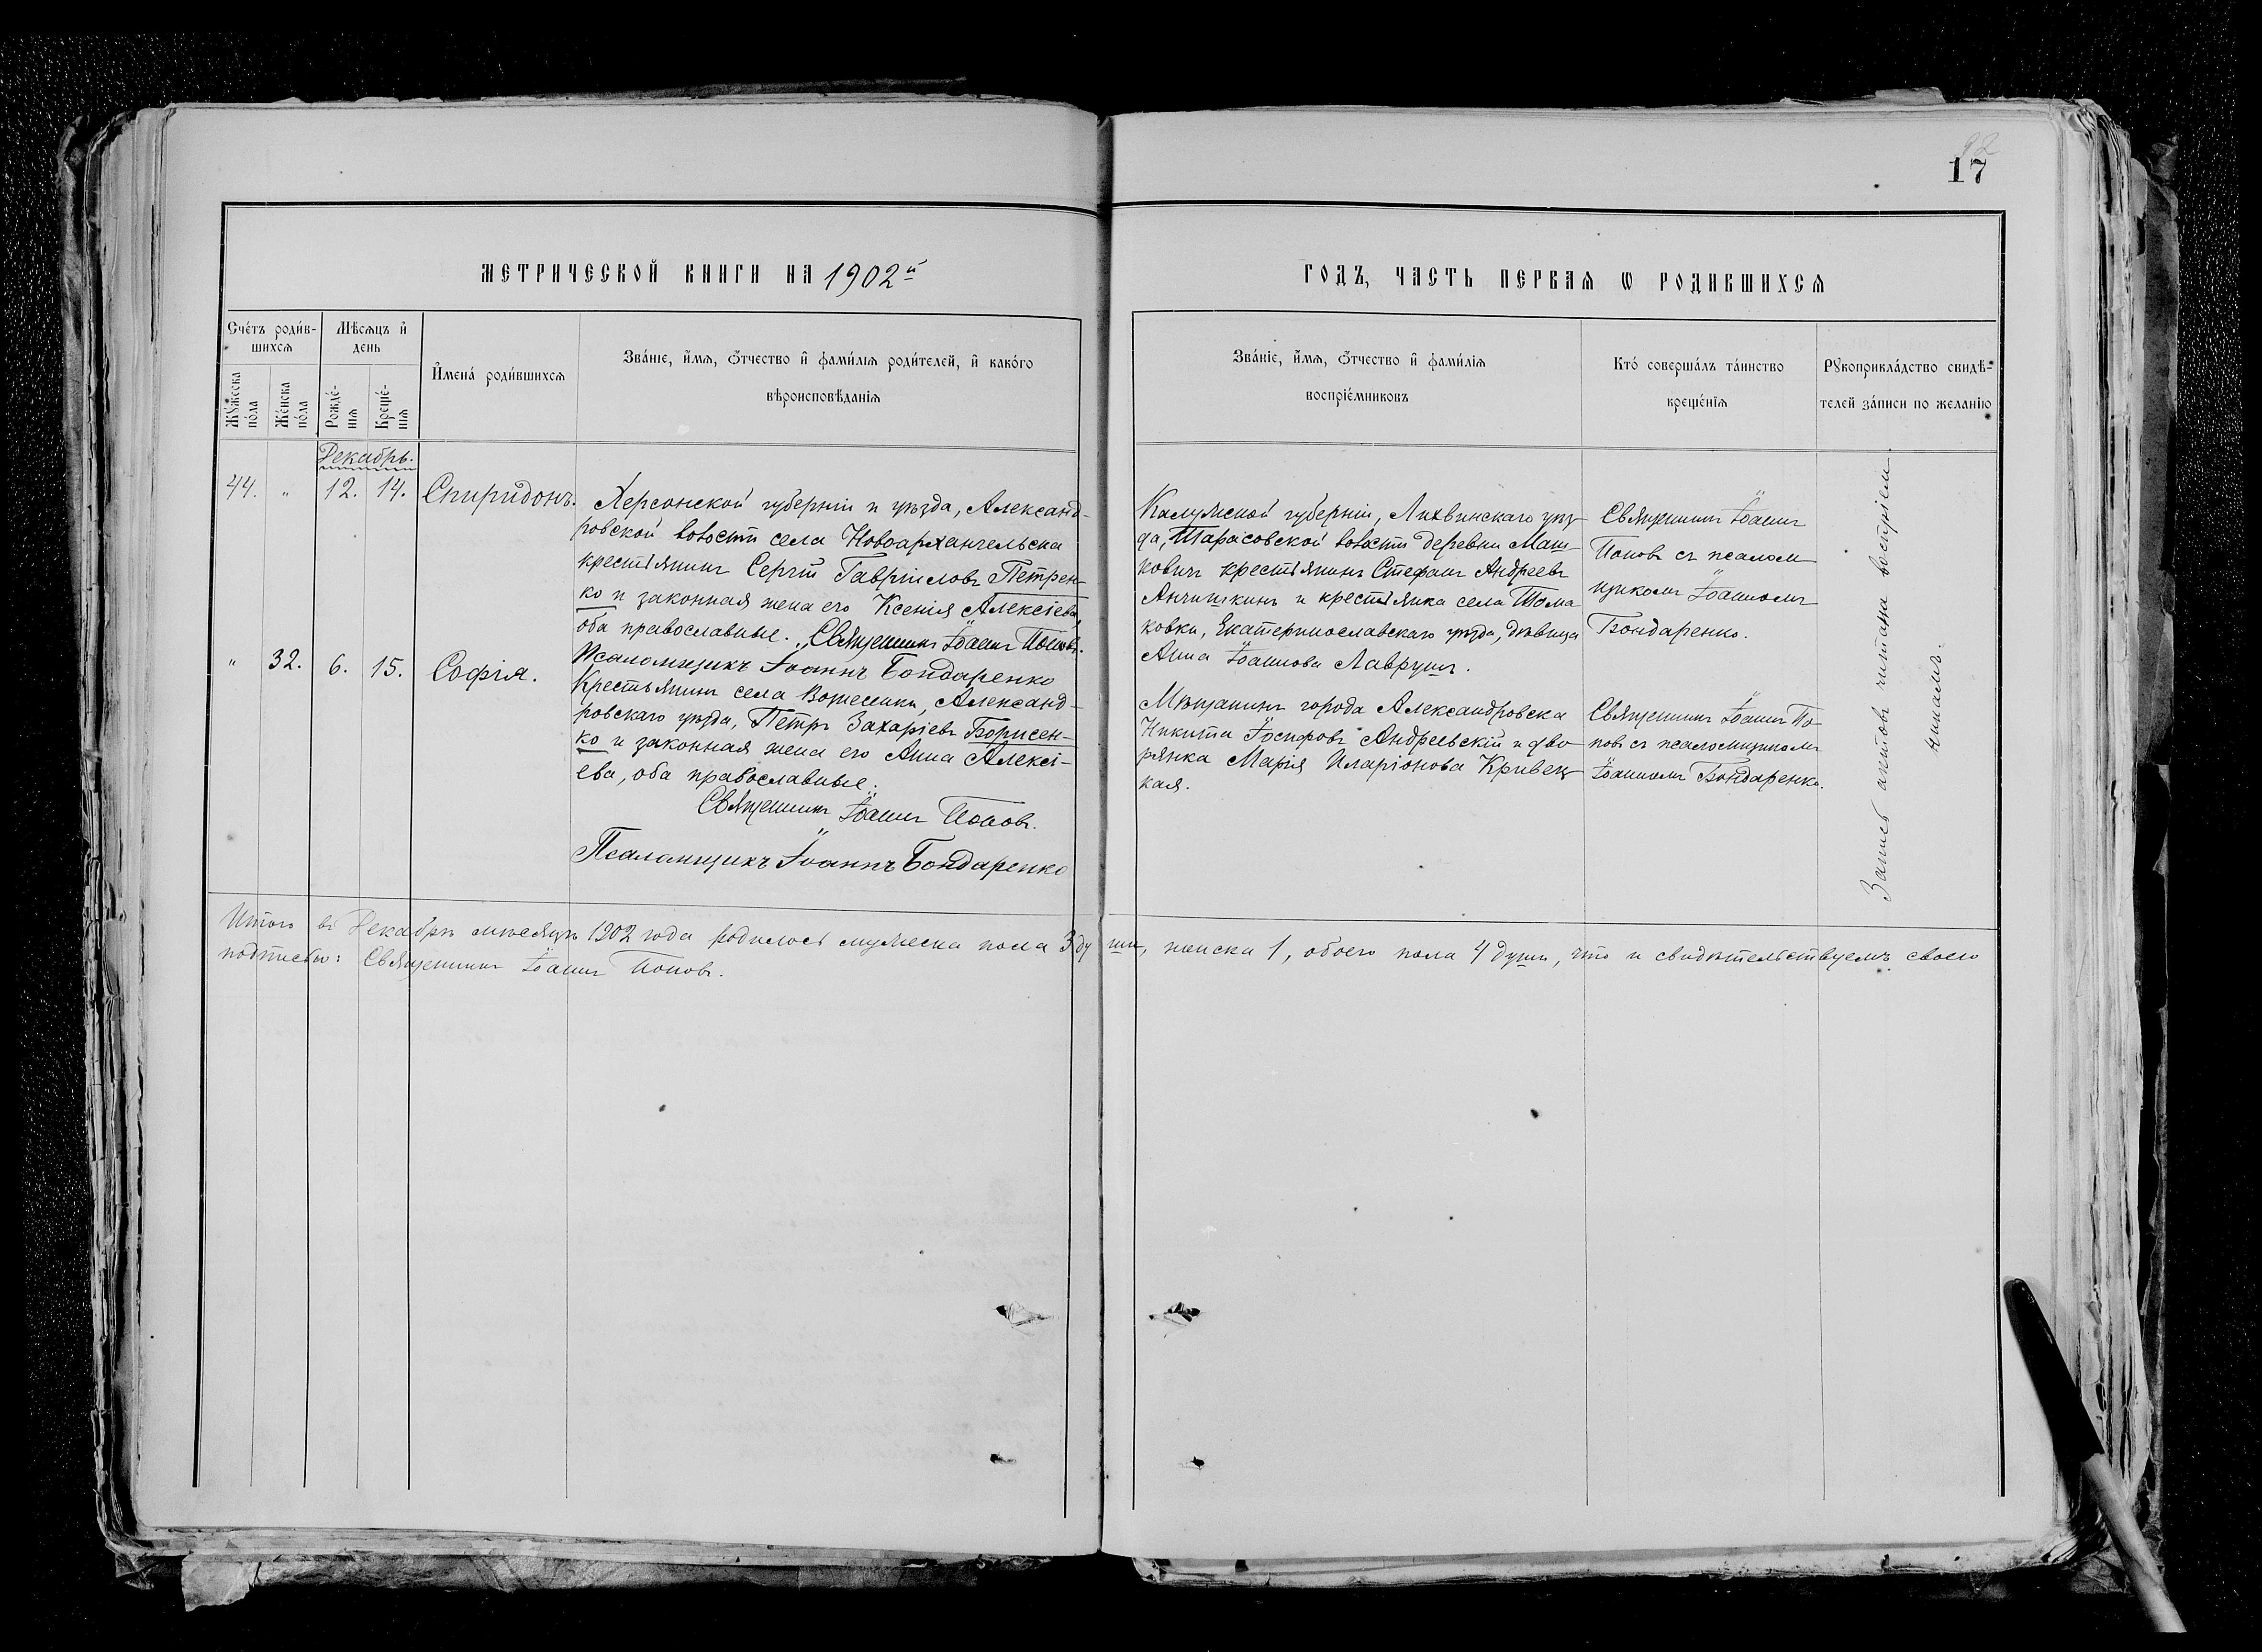 92
17
МЕТРИЧЕСКОЙ КНИГИ НА 1902й
ГОДЪ, ЧАСТЬ ПЕРВАЯ Ѡ РОДИВШИХСЯ
Сче́тъ роди́в-
шихсѧ
Мѣсѧцъ и҆
день
И҆мена̀ роди́вшихсѧ
Зва́нїе, и҆́мѧ, ѻ҆́тчество и҆ фами́лїѧ роди́телей, и҆ како́гѡ
вѣроисповѣ́данїѧ
Мꙋ́жеска
по́ла
Же́нска
по́ла
Рожде́-
нїѧ
Креще́-
нїѧ
Зва́нїе, и҆́мѧ, ѻ҆́тчество и҆ фами́лїѧ
воспрїе́мниковъ
Кто̀ соверша́лъ та́инство
креще́нїѧ
Рꙋкоприкла́дство свидѣ́-
телей за́писи по желанїю
Декабрь.
44. " 12. 14. Спиридонъ.
Херсонской губерніи и уѣзда, Александ-
ровской волости села Новоархангельска
крестьянинъ Сергій Гавріиловъ Петрен-
ко и законная жена его Ксенія Алексіева,
оба православные. Священникъ Іоаннъ Поповъ.
Псаломщикъ Іоаннъ Бондаренко
Калужской губерніи, Лихвинскаго уѣз-
да, Тарасовской волости деревни Маш-
ковичъ крестьянинъ Стефанъ Андреевъ
Анчишкинъ и крестьянка села Тома
ковки, Екатеринославскаго уѣзда, дѣвица
Анна Іоаннова Лаврушъ.
Священникъ Іоаннъ
Поповъ съ псалом
щикомъ Іоанномъ
Бондаренко.
" 32. 6. 15. Софія.
Крестьянинъ села Вознесенки, Александ-
ровскаго уѣзда, Петръ Захаріевъ Борисен-
ко и законная жена его Анна Алексі-
ева, оба православные.
Священникъ Іоаннъ Поповъ.
Псаломщикъ Іоаннъ Бондаренко
Мѣщанинъ города Александровска
Никита Іосифовъ Андреевскій и дво-
рянка Марія Иларіонова Кривец-
кая.
Священникъ Іоаннъ По-
повъ съ псаломщикомъ
Іоанномъ Бондаренко.
Запись актовъ читана воспріем
никамъ.
Итого въ Декабрѣ мѣсяцѣ 1902 года родилось мужеска пола 3 ду ши, женска 1, обоего пола 4 души, что и свидѣтельствуемъ своею
подписью: Священникъ Іоаннъ Поповъ.